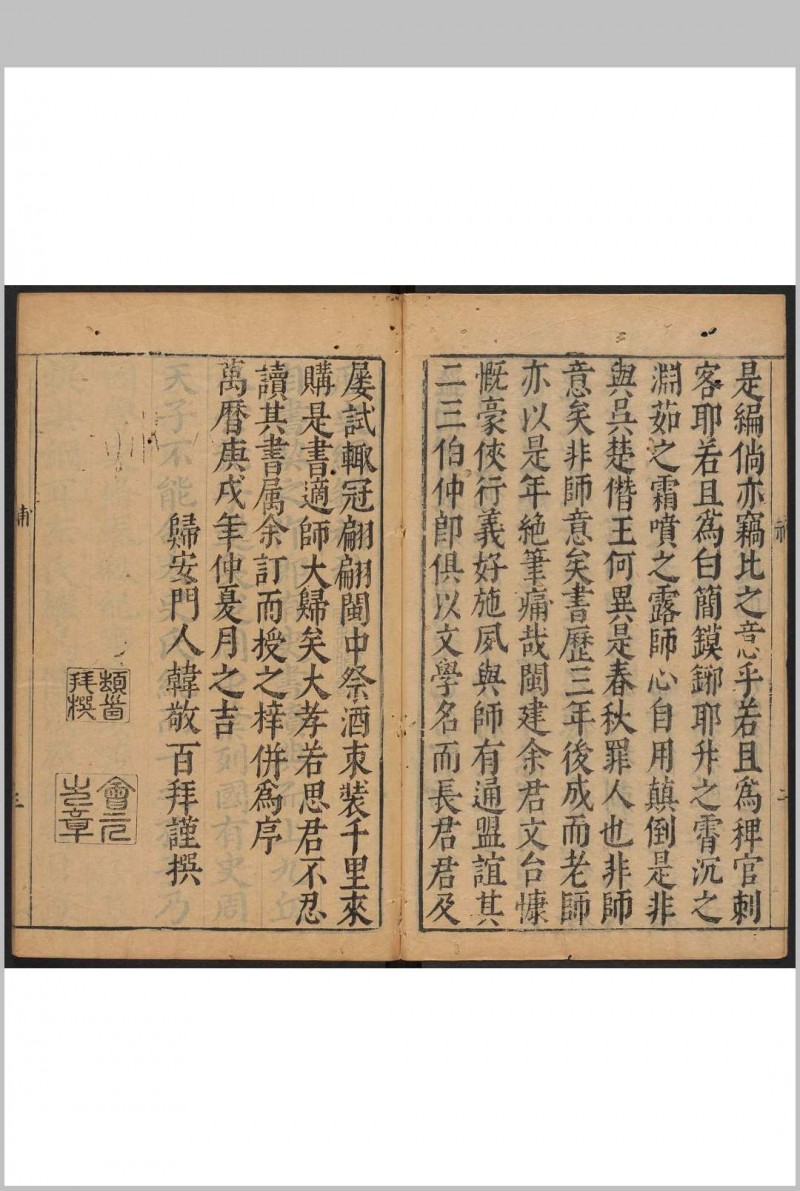 是編倘亦竊比之意乎若且為稗官刺
客耶若且為白簡鏌鋣耶升之霄沉之
淵茹之霜噴之露師心自用顛倒是非
與吳楚僭王何異是春秋罪人也非師
意矣非師意矣書歷三年後成而老師
亦以是年絶筆痛哉閩建余君文台慷
慨豪俠行義好施夙與師有通盟誼其
二三伯仲卽俱以文學名而長君君及
屡試輙冠翩翩閩中祭酒束装千里來
購是書適師大歸矣大孝若思君不忍
讀其書属余訂而授之梓併為序
萬曆庚戌年仲夏月之吉
歸安門人韓敬百拜謹撰
頓首拜撰
會元之章